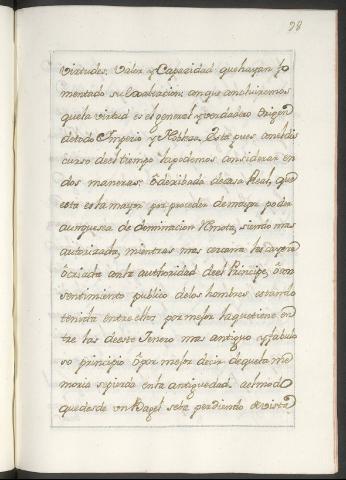 98
virtudes, valor y Capazidad que hayan fo
mentado su exaltacion, con que concluiremos
que la virtud es el general y verdadero origen
de todo Imperio y Nobleza. Esta pues con el dis
curso de el tiempo la podemos considerar en
dos maneras, ô deribada de casa Real, que
esta es la mayor por proceder de mayor poder
aunque sea de dominacion remota, siendo mas
autorizada, mientras mas cercana la cayera
ô criada con la authoridad de el Principe, ô con
sentimiento publico de los hombres estando
tenida entre ellos por mejor la que tiene en
tre las de este Genero mas antiguo y fabulo
so principio ô por mejor decir de que la me
moria se pierda en la antiguedad. a el modo
que desde un Bagel se ba perdiendo de vista